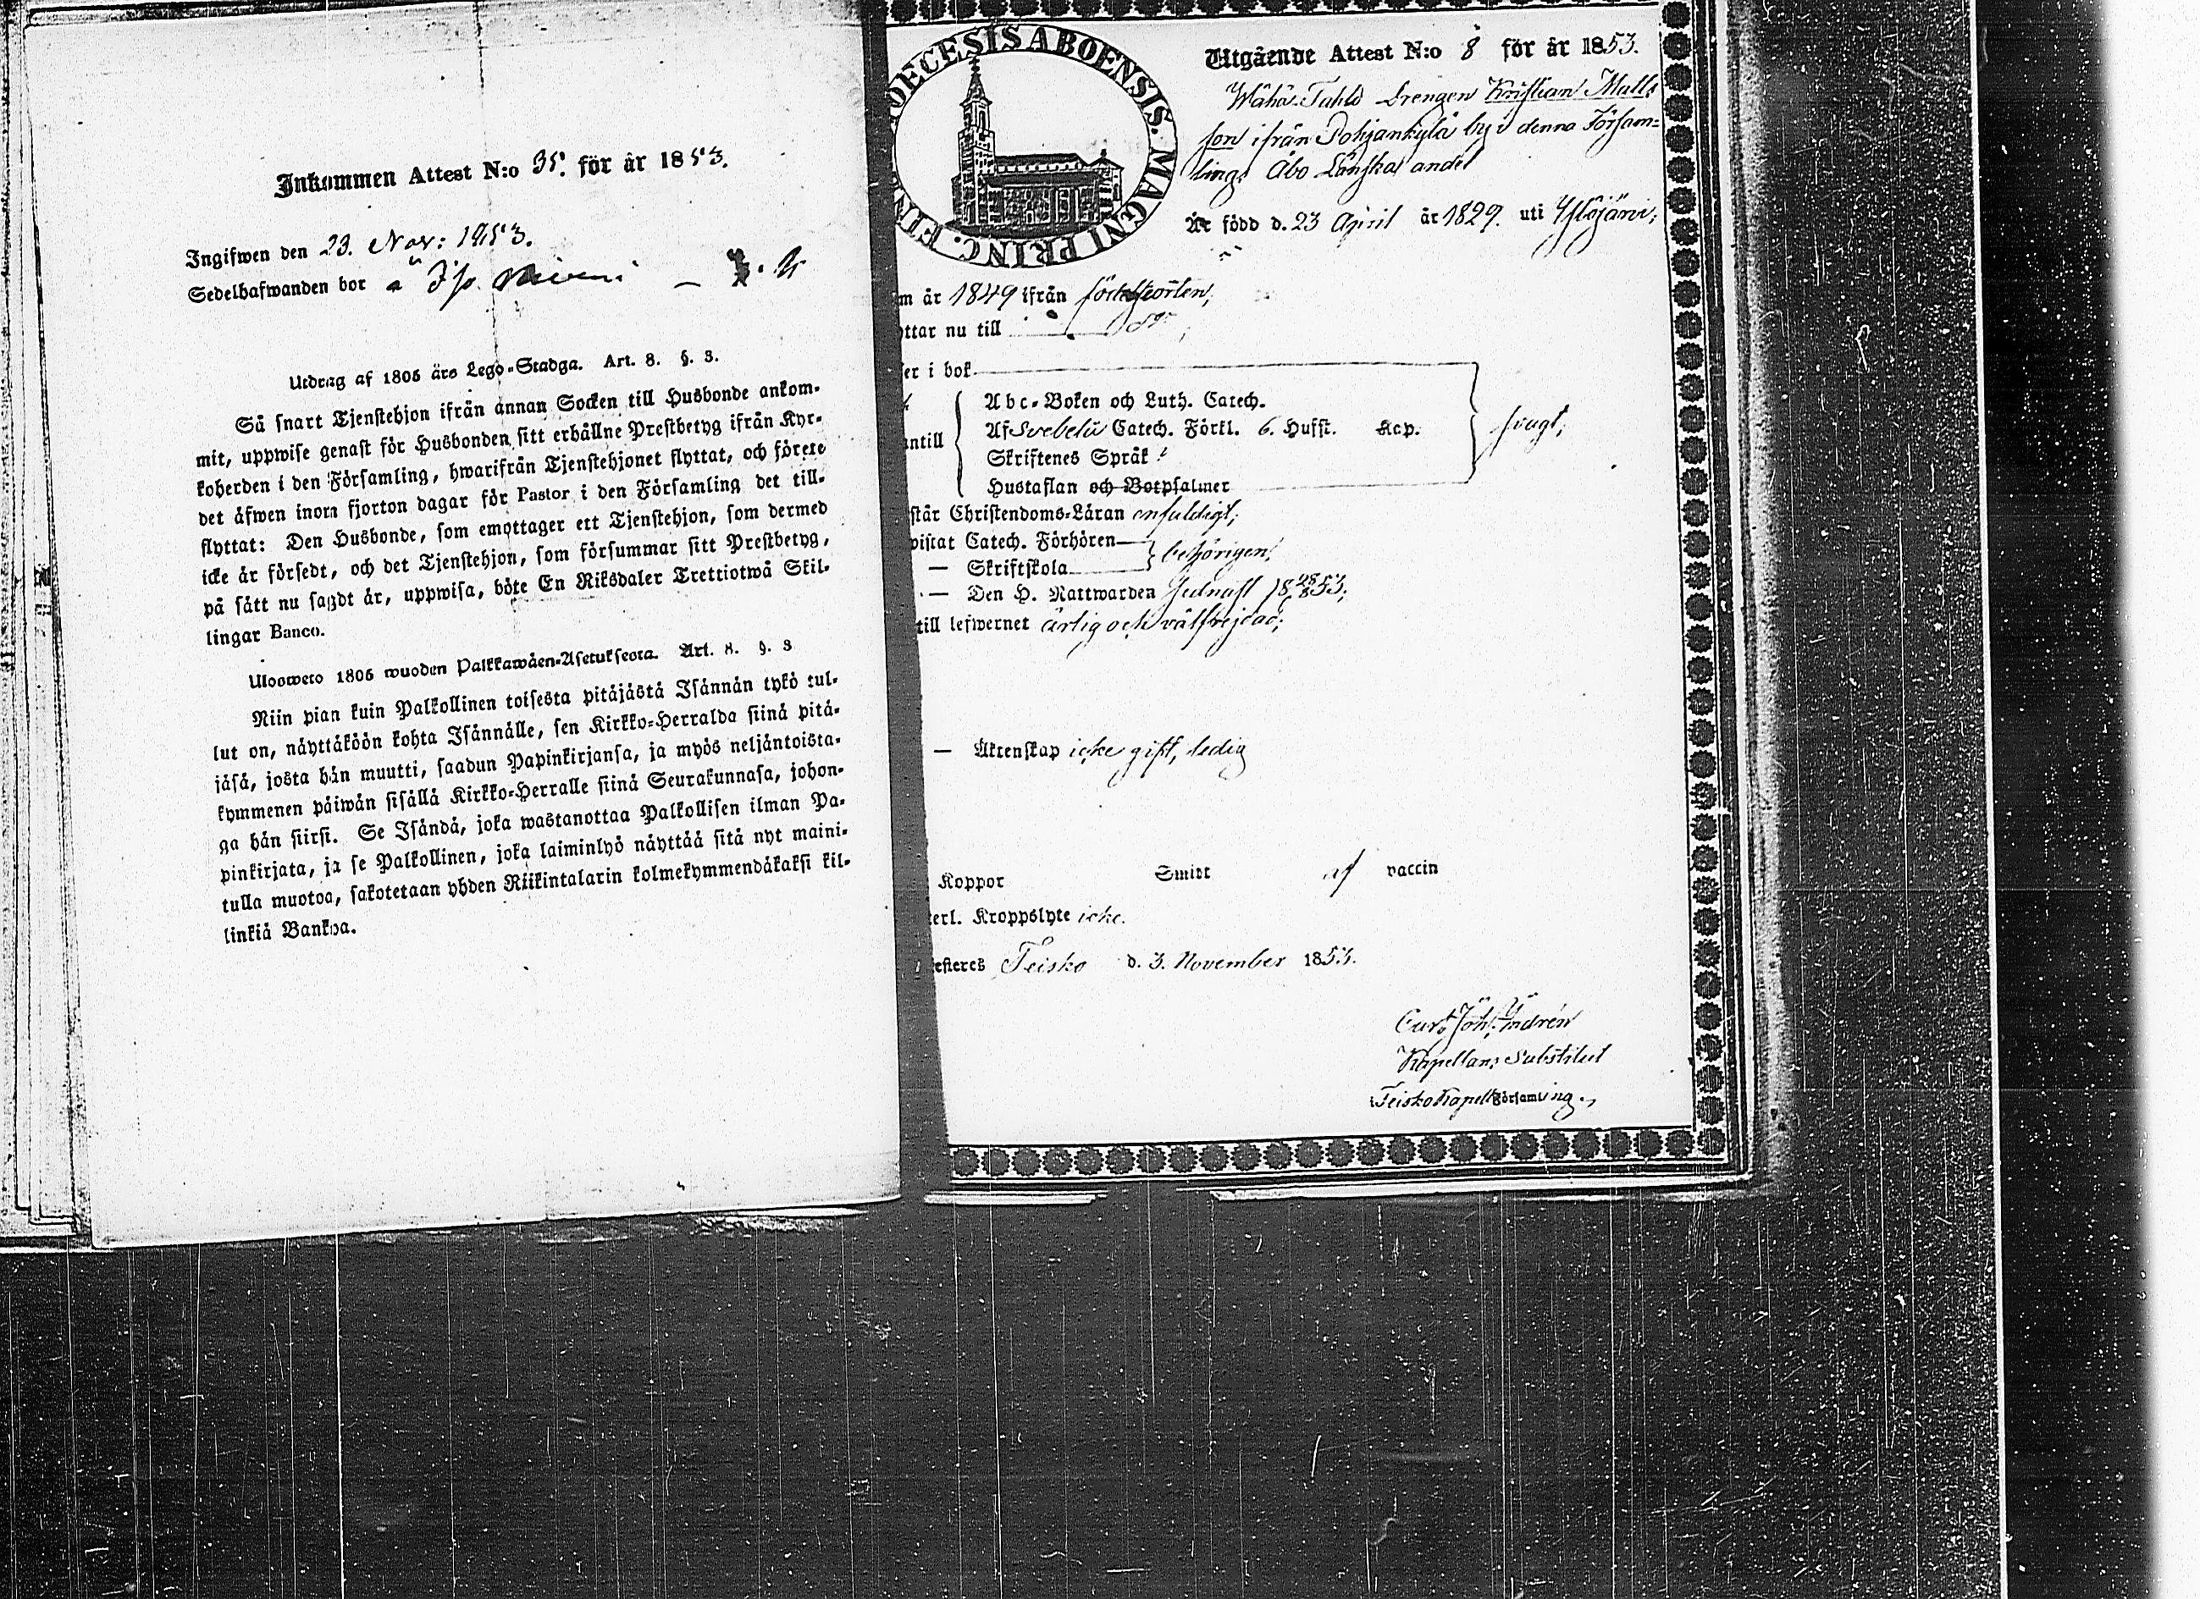 Inkommen Attest N:o 35. för år 1853.
Ingifwen den 23. Nov: 1853.
Sedelhafwanden bor å
Utdrag af 1805 års Lego-Stadga. Art. 8. §. 3.
Så snart Tjenstehjon ifrån annan Socken till Husbonde ankom-
mit, uppwise genast för Husbonden sitt erhållne Prestbetyg ifrån Kyr-
koherden i den Församling, hwarifrån Tjenstehjonet flyttat, och förete
det äfwen inom fjorton dagar för Pastor i den Församling det till-
flyttat: Den Husbonde, som emottager ett Tjenstehjon, som dermed
icke är försedt, och det Tjenstehjon, som försummar sitt Prestbetyg,
på sätt nu sagdt är, uppwisa, böte En Riksdaler Trettiotwå Skil-
lingar Banco.
Uloswеto 1805 wuoden Palkkawäen-Asetuksesta. Art. 8. §. 3
Niin pian kuin Palkollinen toisesta pitäjästä Isännän tykö tul-
lut on, näyttäköön kohta Isännälle, sen Kirkko-Herralda siinä pitä-
jäsä, josta hän muutti, saadun Papinkirjansa, ja myös neljäntoista-
kymmenen päiwän sisällä Kirkko-Herralle siinä Seurakunnasa, johon-
ga hän siirsi. Se Isändä, joka wastanottaa Palkollisen ilman Pa-
pinkirjata, ja se Palkollinen, joka laiminlyö näyttää sitä nyt maini-
tulla muotoa, sakotetaan yhden Riikintalarin kolmekymmendäkaksi kil-
linkiä Bankoa.
DIOECESIS ABOENSIS. MAGNI PRINC. FIN
Utgående Attest N:o 8 för år 1853.
Wähä-Tahlo Drengen Kristian Matts
son ifrån Pohjankylä by i denna Försam=
lings Åbo Länska andel
Är född d. 23 April år 1829. uti Ylöjärvi,
m år 1849 ifrån födelseorten,
ttar nu till
er i bok
Abc-Boken och Luth. Catech.
ntill
Af Svebelii Catech. Förkl. 6. Hufst. Kap.
svagt,
Skriftenes Språk
Hustaflan och Botpsalmer
står Christendoms-Läran enfaldigt,
vistat Catech. Förhören
behörigen,
— Skriftskola
— Den H. Nattwarden 18 28/8 53,
till lefwernet ärlig och välfrejdad,
— Äktenskap icke gift, ledig
Koppor Smidt af vaccin
terl. Kroppslyte icke.
esteres Teisko d. 3. November 1853.
Carl Joh. Indrén
Kapellans Substitut
i Teisko Kapell Församling.